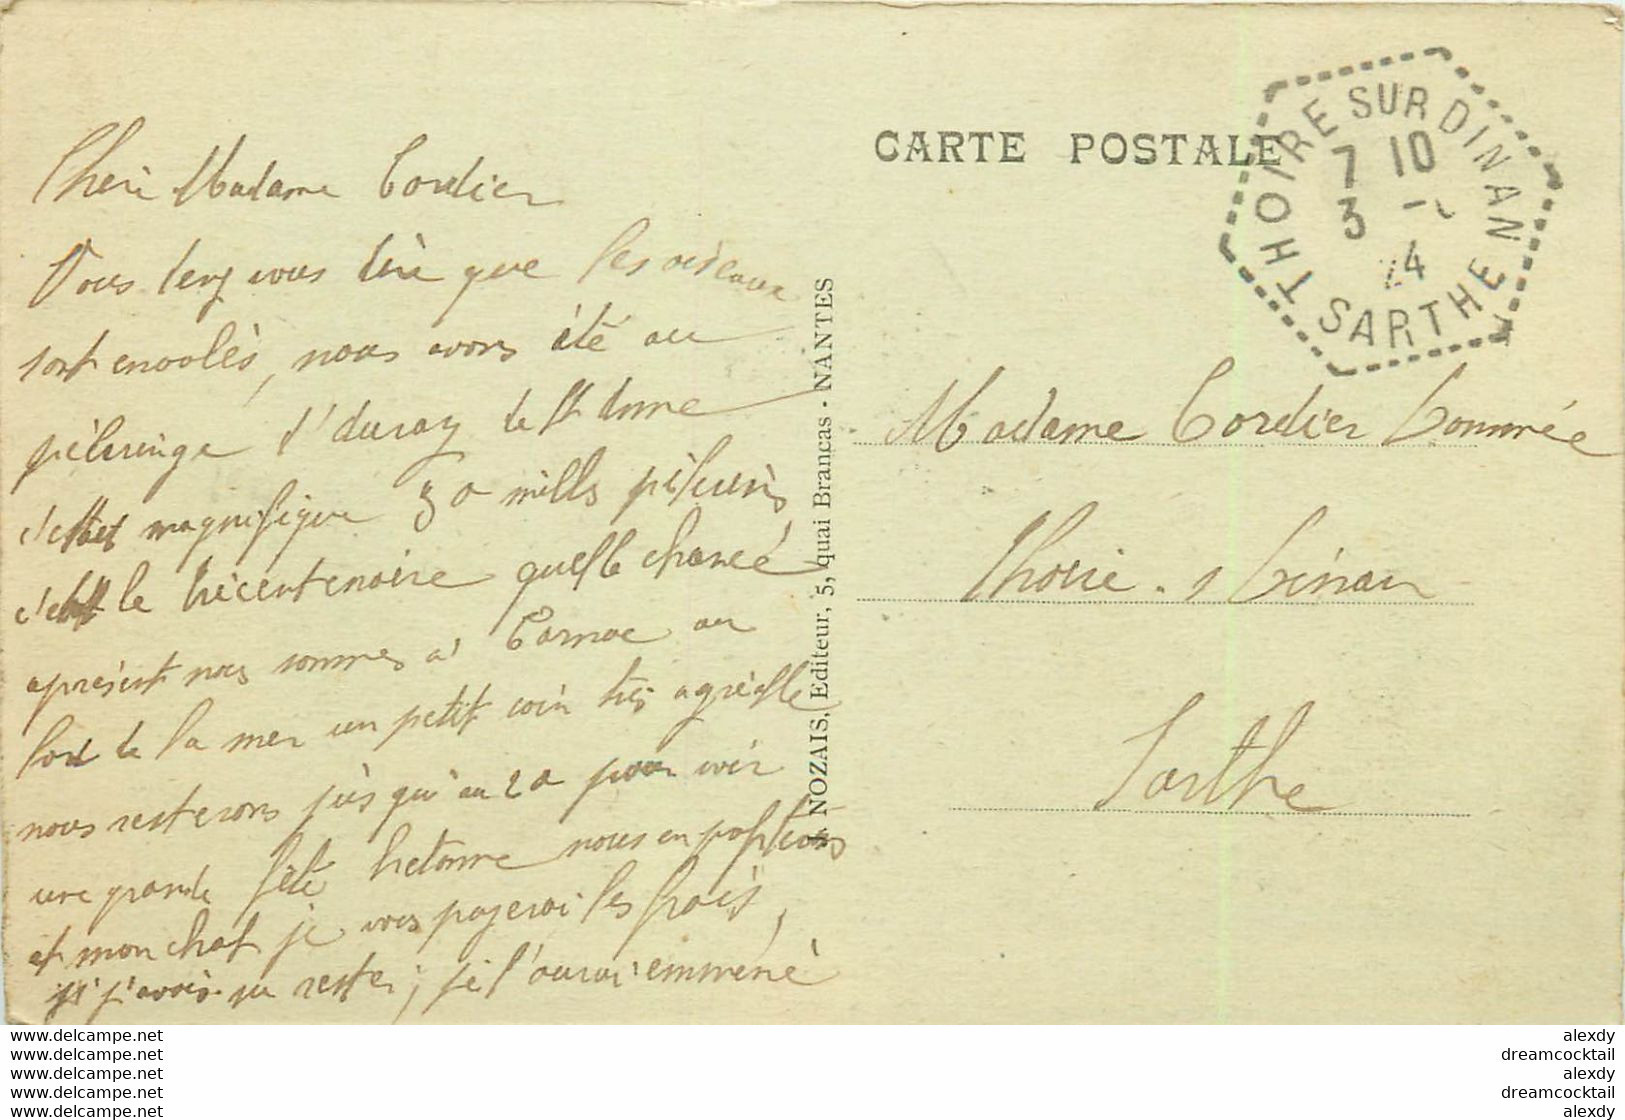 Cheri Madame Cordier
Vous venez vous dire que les oiseaux
sont envolés, nous avons été au
péleringe d'auray de St anne
c'etait magnifique 30 mills pélerins
c'est le tricentenaire quelle chancé
apresent nous sommes a Carnac au
bord de la mer un petit coin très agréable
nous resterons jusqu'au 20 pour voir
une grande fête bretonne nous en profitons
et mon chat je vous payerai les frais,
si j'avais su rester, je l'aurai emméné
CARTE POSTALE
NOZAIS, Editeur, 5, quai Brancas - NANTES
THOIRE SUR DINAN
7 10
3 -
24
SARTHE
Madame Cordier
Thoiré - s Dinan
Sarthe
www.delcampe.net
www.delcampe.net
www.delcampe.net
www.delcampe.net
www.delcampe.net
alexdy
dreamcocktail
alexdy
dreamcocktail
alexdy